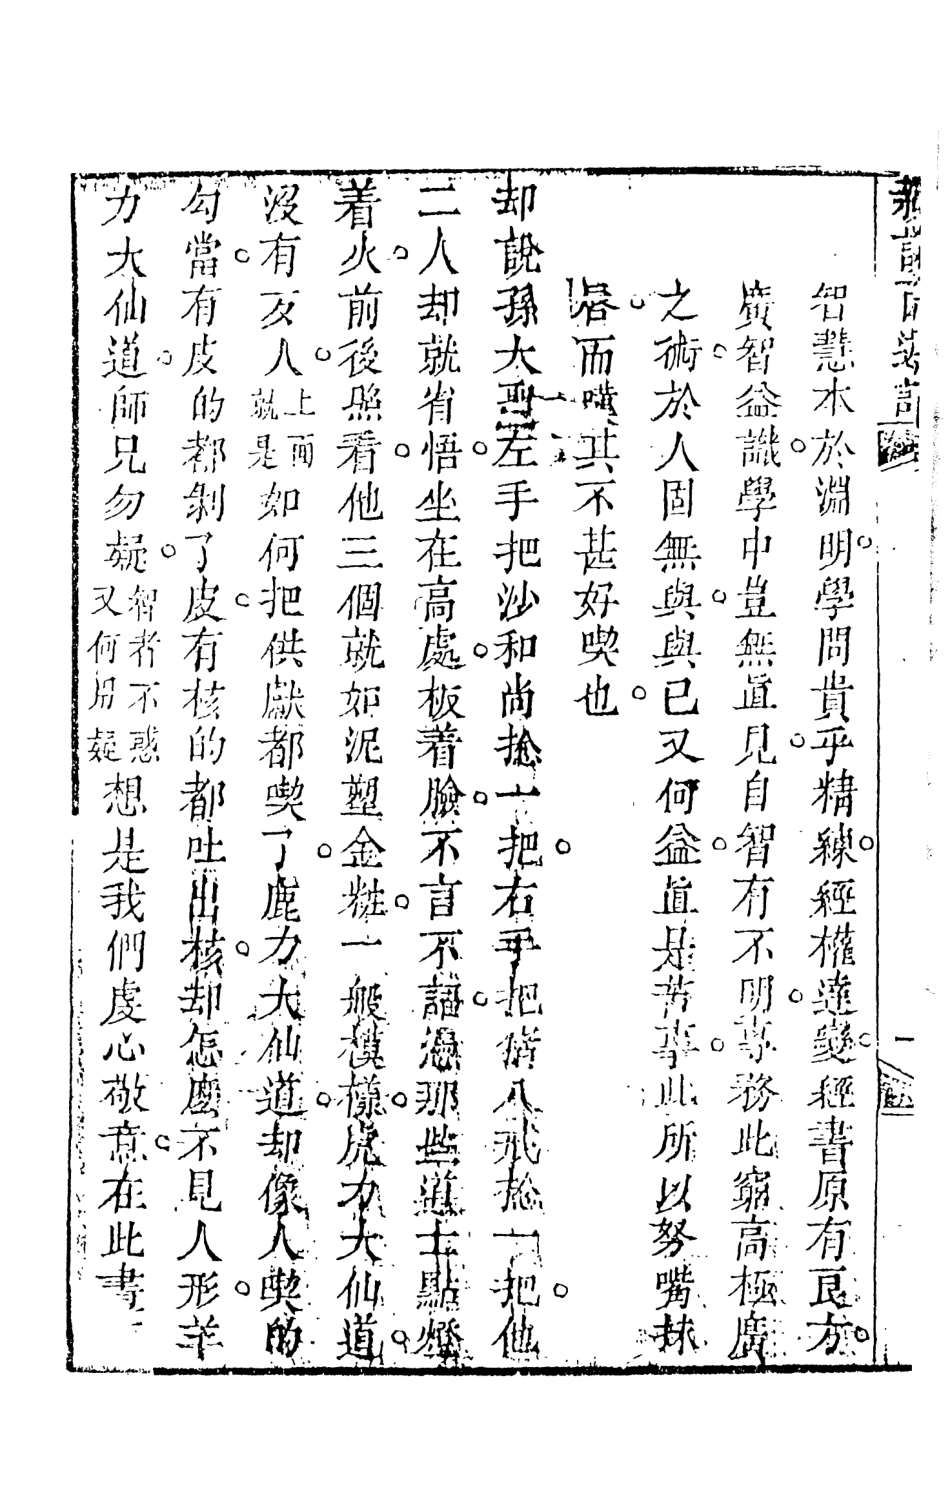 智慧本於淵明學問貴乎精練經權達變經書原有良方
廣智益識學中豈無眞見自智有不明事務此窮高極廣
之術於人固無與與已又何益眞是苦事此所以努嘴抹
唇而嘆其不甚好喫也
却說孫大聖左手把沙和尚捻一把右手把猪八戒捻一把他
二人却就省悟坐在高處板着臉不言不語憑那些道士點燈
着火前後照看他三個就如泥塑金粧一般模樣虎力大仙道
沒有歹人上面就是如何把供獻都喫了鹿力大仙道却像人喫的
勾當有皮的都剝了皮有核的都吐出核却怎麽不見人形羊
力大仙道師兄勿疑智者不惑又何用疑想是我們虔心敬意在此書